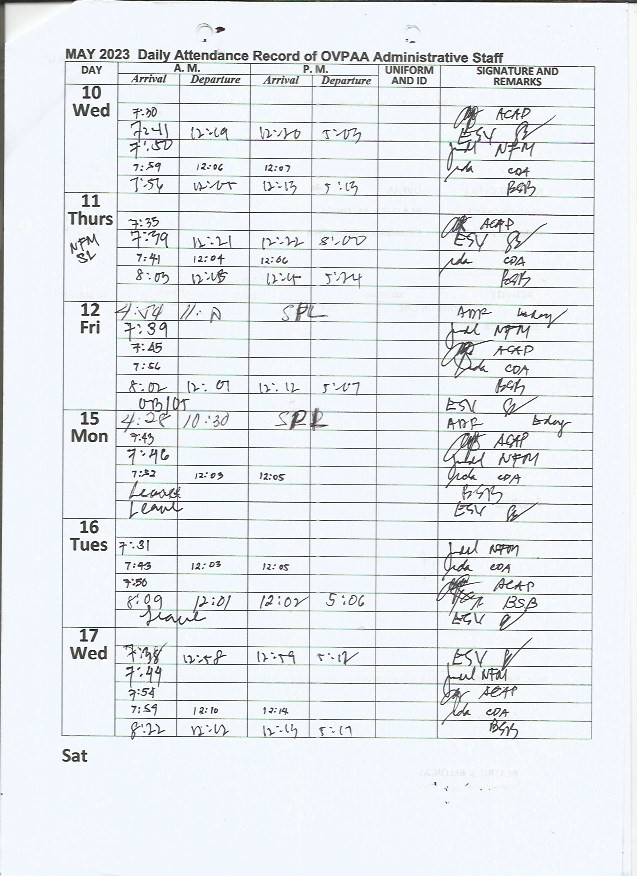 MAY 2023 Daily Attendance Record of OVPAA Administrative Staff
DAY A. M. P. M. UNIFORM AND ID SIGNATURE AND REMARKS
Arrival Departure Arrival Departure
10 Wed
7:30 ACAP
7:41 12:19 12:20 5:03 ESV
7:50 NFM
7:59 12:06 12:07 CDA
7:56 12:05 12:13 5:13 BSB
11 Thurs
NFM SL
7:35 ACAP
7:39 12:21 12:22 8:00 ESV
7:41 12:04 12:06 CDA
8:03 5:24 BSB
12 Fri
SPL bday
7:39 NFM
7:45 ACAP
7:56 CDA
8:02 12:01 12:12 5:07 BSB
OB/OT ESV
15 Mon
4:28 10:30 SPL bday
7:43 ACAP
7:46 NFM
7:52 12:03 12:05 CDA
Leave BSB
Leave ESV
16 Tues
7:31 NFM
7:43 12:03 12:05 CDA
7:50 ACAP
8:09 12:01 12:02 5:06 BSB
Leave ESV
17 Wed
7:38 12:58 12:59 5:12 ESV
7:44 NFM
7:54 ACAP
7:59 12:10 12:14 CDA
8:22 12:12 12:13 5:17 BSB
Sat